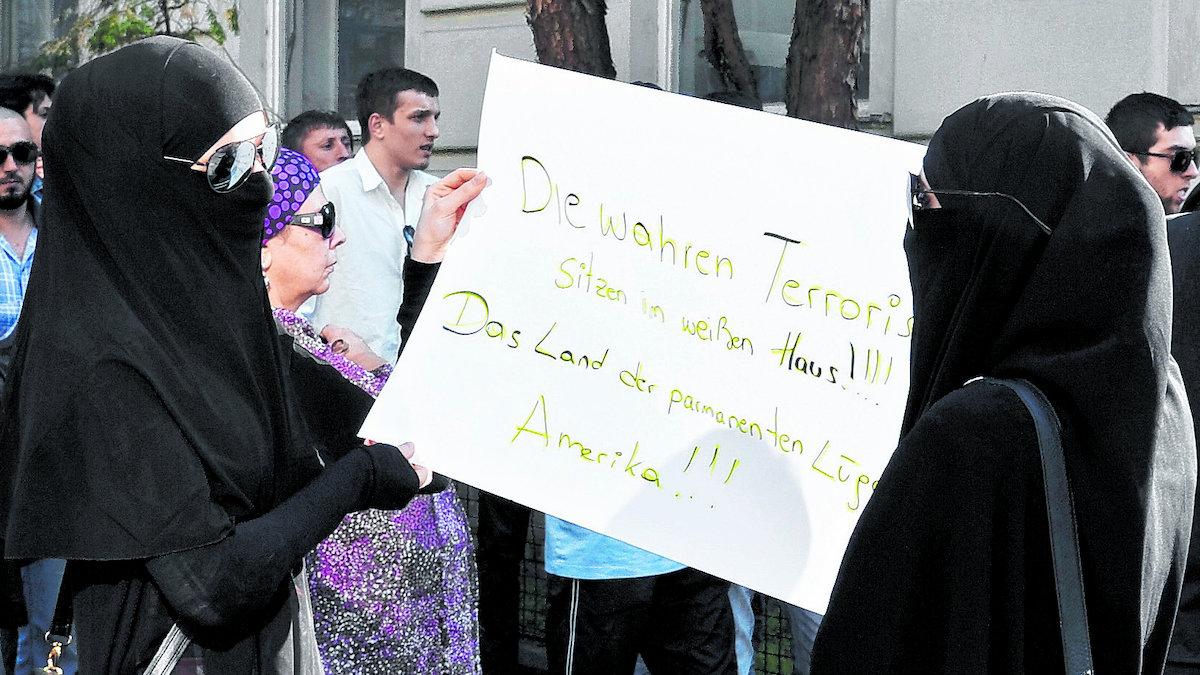 Die wahren Terroris
sitzen im weißen Haus!!!!
Das Land der parmanenten Lüge
Amerika..!!!